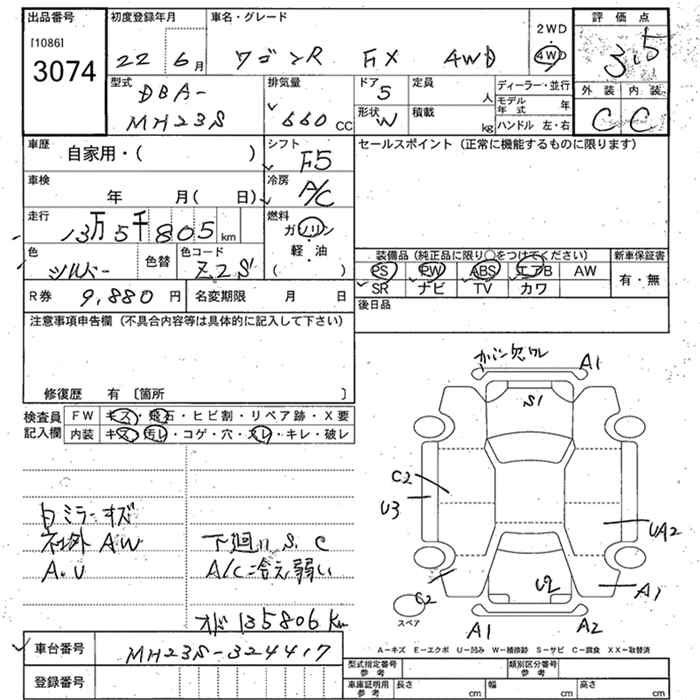 出品番号
[1086]
3074
初度登録年月
22 6月
車名・グレード
ワゴンR FX 4WD
2WD
4WD
評価点
3.5
外装 内装
C C
型式
DBA-
MH23S
排気量
660 CC
ドア
5
形状
W
定員
人
積載
kg
ディーラー・並行
モデル年式 年
ハンドル 左・右
車歴
自家用・( )
シフト
F5
セールスポイント (正常に機能するものに限ります)
車検
年 月( 日)
冷房
A/C
走行
13万5千805km
燃料
ガソリン
軽・油
( )
色
シルバー
色替
色コード
Z2S
装備品 (純正品に限り○をつけてください)
PS PW ABS エアB AW
SR ナビ TV カワ
新車保証書
有・無
R券 9,880 円
名変期限 月 日
後日品
注意事項申告欄 (不具合内容等は具体的に記入して下さい)
修復歴 有 〔箇所 〕
検査員
記入欄
FW キズ・飛石・ヒビ割・リペア跡・X要
内装 キズ・汚レ・コゲ・穴・スレ・キレ・破レ
社外 AW
A.U
下廻り S.C
A/C冷え弱い
オド 135806 Km
A1
S1
C2
U3
UA2
C2
U2
A1
A1
A2
スペア
A−キズ E−エクボ U−凹み W−補修跡 S−サビ C−腐食 XX−取替済
車台番号
MH23S-324417
登録番号
型式指定番号
参考
類別区分番号
参考
車庫証明用
参考
長さ cm
幅 cm
高さ cm